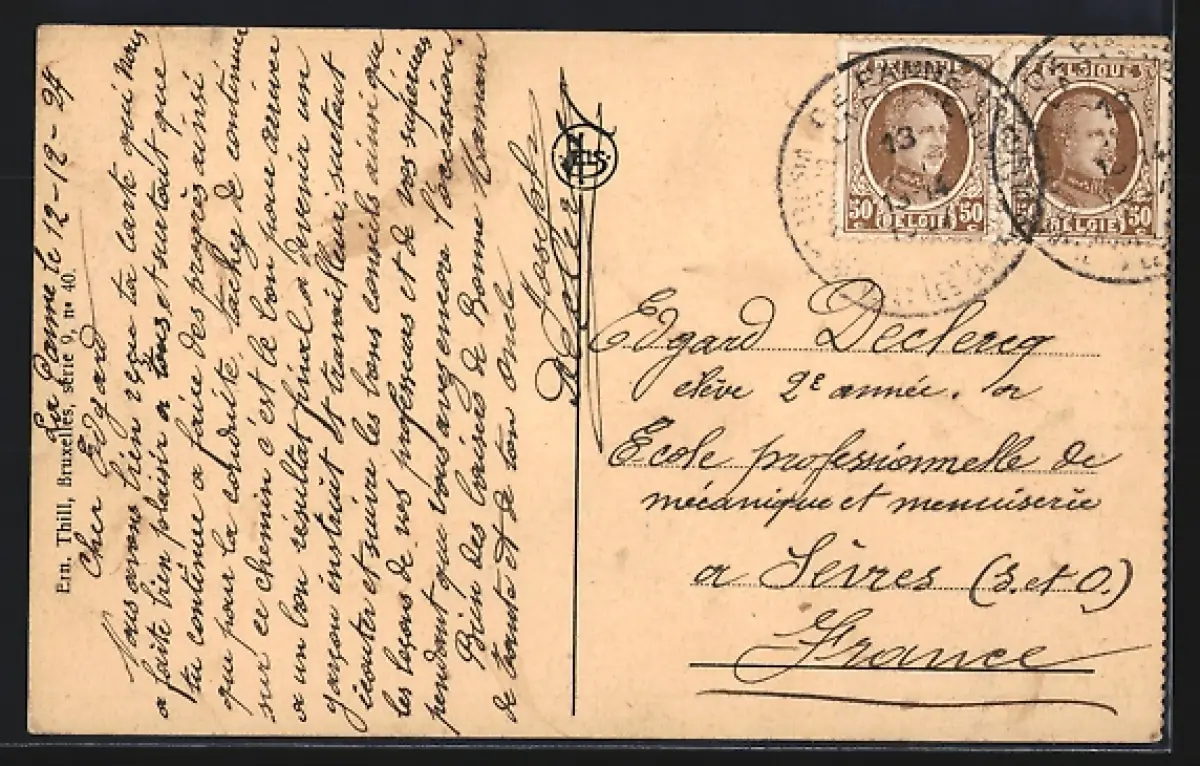 Ern. Thill, Bruxelles, série 9, n° 40.
La Panne le 12-12-24
Cher Edgard
Nous avons bien reçu ta carte qui nous
a faite bien plaisir a tous et surtout que
tu continue a faire des progrès ainsi
que pour la conduite, tachez de continuer
sur ce chemin c'est le bon pour arriver
a un bon résultat final a devenir un
garçon instruit et travailleur, surtout
écouter et suivre les bons conseils ainsi que
les leçons de vos professeurs et de vos supérieurs
pendant que vous avez encore l'occasion.
Bien des baisers de Bonne Maman
de tante et de ton oncle
Joseph
BELGIE
50 50
BELGIE
50
13
14
Edgard Declercq
elève 2e année. a
Ecole professionnelle de
mécanique et menuiserie
a Sèvres (S. et O.)
France